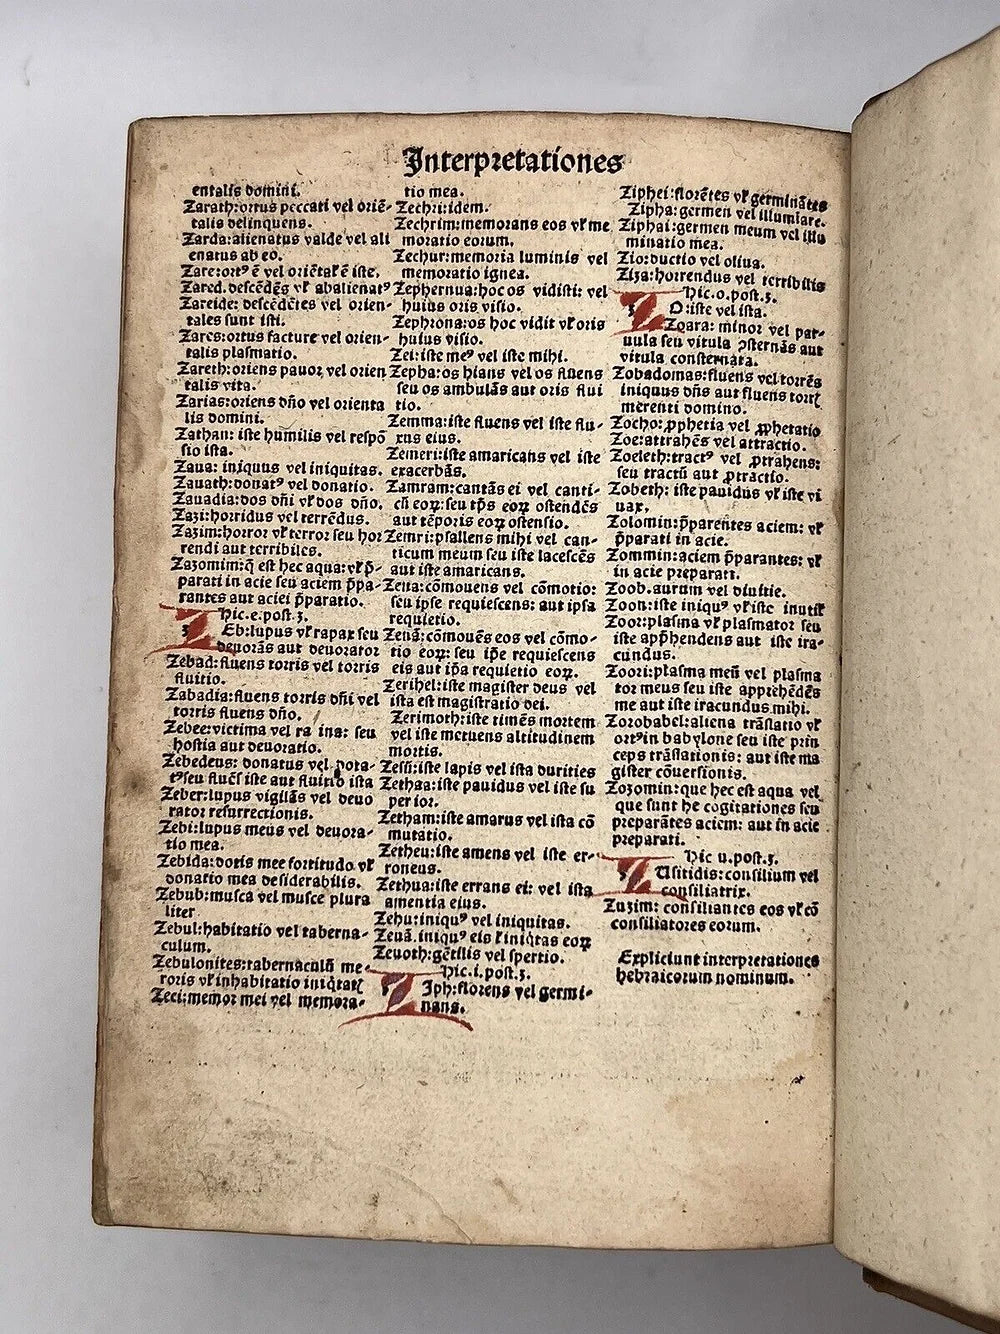 Interpretationes
entalis domini.
Zarath:ortus peccati vel oriē-
talis delinquens.
Zarda:alienatus valde vel ali
enatus ab eo.
Zare:ortꝰ ē vel oriētal' ē iste.
Zared.descēdēs vl' abalienatꝰ
Zareide: descēdētes vel orien-
tales sunt isti.
Zares:ortus facture vel orien-
talis plasmatio.
Zareth:oriens pauor vel orien
talis vita.
Zarias:oriens dño vel orienta
lis domini.
Zathan: iste humilis vel respō
sio ista.
Zaua: iniquus vel iniquitas.
Zauath:donatꝰ vel donatio.
Zauadia:dos dñi vl' dos dño.
Zazi:horridus vel terrēdus.
Zazim:horror vl' terror seu hor
rendi aut terribiles.
Zazomim:q̄ est hec aqua:vl' p̄-
parati in acie seu aciem p̄pa-
rantes aut aciei p̄paratio.
Hic.e.post.z.
ZEb:lupus vl' rapax seu
deuorās aut deuorator
Zebad: fluens torris vel torris
fluitio.
Zabadia:fluens torris dñi vel
torris fluens dño.
Zebee:victima vel ra ina: seu
hostia aut deuoratio.
Zebedeus: donatus vel dota-
tꝰ seu fluēs iste aut fluitio ista
Zeber:lupus vigilās vel deuo
rator resurrectionis.
Zebi:lupus meus vel deuora-
tio mea.
Zebida:dotis mee fortitudo vl'
donatio mea desiderabilis.
Zebub:musca vel musce plura
liter
Zebul:habitatio vel taberna-
culum.
Zebulonites:tabernaculū me-
roris vl' inhabitatio iniq̄tatꝭ
Zeci:memor mei vel memora-
tio mea.
Zechri:idem.
Zechrim:memorans eos vl' me
moratio eorum.
Zechur:memoria luminis vel
memoratio ignea.
Zephernua:hoc os vidisti: vel
huius oris visio.
Zephrona:os hoc vidit vl' oris
huius visio.
Zei:iste meꝰ vel iste mihi.
Zepha:os hians vel os fluens
seu os ambulās aut oris flui
tio.
Zemma:iste fluens vel iste flu-
xus eius.
Zemeri:iste amaricans vel iste
exacerbās.
Zamram:cantās ei vel canti-
cū eoꝝ:seu tp̄s eoꝝ ostendēs
aut tēporis eoꝝ ostensio.
Zemri:psallens mihi vel can-
ticum meum seu iste lacescēs
aut iste amaricans.
Zena:cōmouens vel cōmotio:
seu ipse requiescens: aut ipsa
requietio.
Zenā:cōmouēs eos vel cōmo-
tio eoꝝ: seu ip̄e requiescens
eis aut ip̄a requietio eoꝝ.
Zerihel:iste magister deus vel
ista est magistratio dei.
Zerimoth:iste timēs mortem
vel iste metuens altitudinem
mortis.
Zesū:iste lapis vel ista durities
Zethaa:iste pauidus vel iste su
perior.
Zetham:iste amarus vel ista cō
mutatio.
Zetheu:iste amens vel iste er-
roneus.
Zethua:iste errans ei: vel ista
amentia eius.
Zehu:iniquꝰ vel iniquitas.
Zeuā.iniquꝰ eis l' iniq̄tas eoꝝ
Zeuoth:gētilis vel spertio.
Hic.i.post.z.
ZIph:florens vel germi-
nans.
Ziphei:florētes vl' germinātes
Zipha:germen vel illumiare.
Ziphai:germen meum vel illu
minatio mea.
Zio:ductio vel oliua.
Ziza:horrendus vel terribilis
Hic.o.post.z.
ZO:iste vel ista.
Zoara: minor vel par-
uula seu vitula ꝯsternās aut
vitula consternata.
Zobadomas:fluens vel torrēs
iniquus dñs aut fluens torrꝭ
merenti domino.
Zocho:ꝓphetia vel ꝓphetatio
Zoe:attrahēs vel attractio.
Zoeleth:tractꝰ vel ꝓtrahens:
seu tractū aut ꝓtractio.
Zobeth: iste pauidus vl' iste vi
uax.
Zolomin:p̄parentes aciem: vl'
p̄parati in acie.
Zommin:aciem p̄parantes: vl'
in acie preparati.
Zoob.aurum vel diuitie.
Zoon:iste iniquꝰ vl' iste inutil'
Zoor:plasma vl' plasmator seu
iste app̄hendens aut iste ira-
cundus.
Zoori:plasma meū vel plasma
tor meus seu iste apprehēdēs
me aut iste iracundus mihi.
Zorobabel:aliena trāslatio vl'
ortꝰ in babylone seu iste prin
ceps trāslationis: aut iste ma
gister cōuersionis.
Zozomin:que hec est aqua vel
que sunt he cogitationes seu
preparātes aciem: aut in acie
preparati.
Hic u.post.z.
ZUsitidis:consilium vel
consiliatrix.
Zuzim: consiliantes eos vl' cō
consiliatores eorum.
Expliciunt interpretationes
hebraicorum nominum.